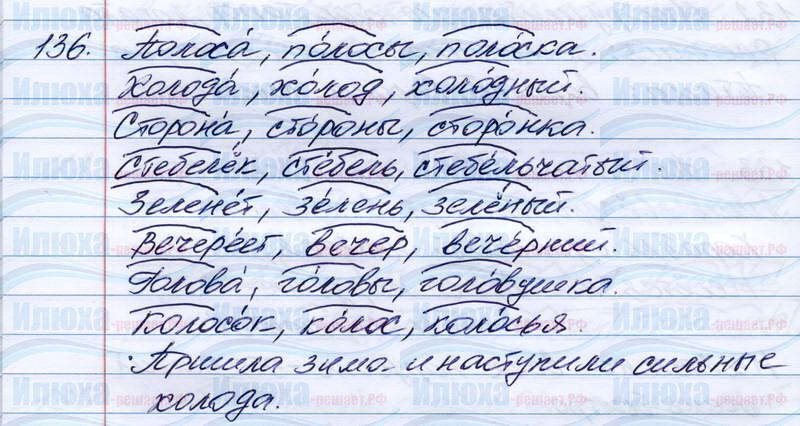 136. Полоса́, по́лосы, поло́ска.
Холода́, хо́лод, холо́дный.
Сторона́, сто́роны, сторо́нка.
Стебелёк, сте́бель, стебе́льчатый.
Зелене́т, зе́лень, зелёный.
Вечере́ет, ве́чер, вече́рний.
Голова́, го́ловы, голо́вушка.
Колосо́к, ко́лос, коло́сья.
Пришла зима и наступили сильные
холода.